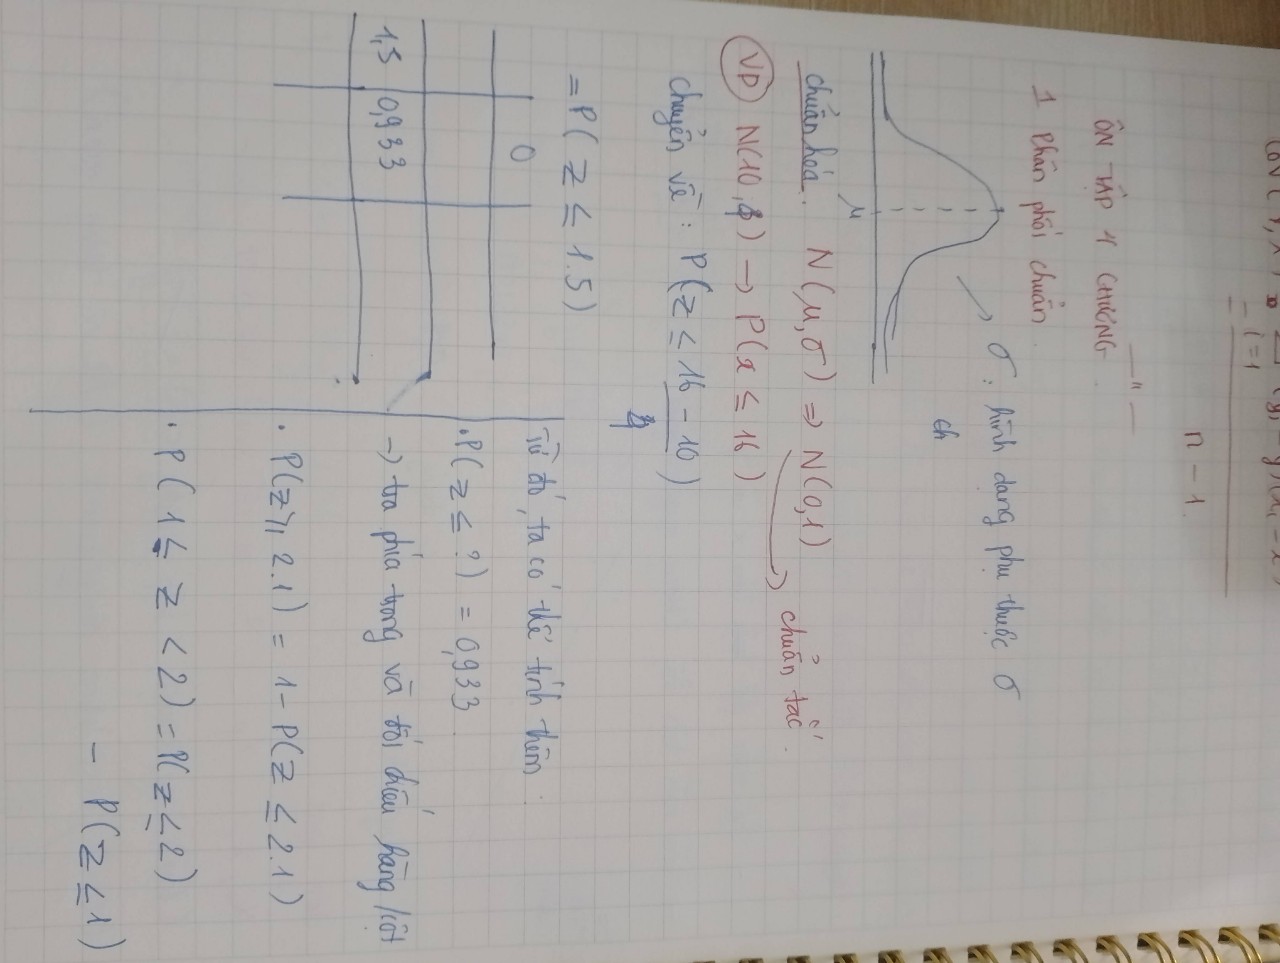 i=1
n - 1
— " —
ÔN TẬP 1 CHƯƠNG
1 phân phối chuẩn
σ : hình dạng phụ thuộc σ
ch
μ
chuẩn hoá: N(μ,σ) ⇒ N(0,1)
chuẩn tắc.
VD N(10,4) → P(x ≤ 16)
chuyển về: P(z ≤ 16 - 10)
4
= P( z ≤ 1.5)
0
1,5 0,933
Từ đó, ta có thể tính thêm:
• P(z ≤ ?) = 0,933
→ tra phía trong và đối chiếu hàng/cột
• P(z ≥ 2.1) = 1 - P(z ≤ 2.1)
• P(1 ≤ z < 2) = P(z ≤ 2)
- P(z ≤ 1)